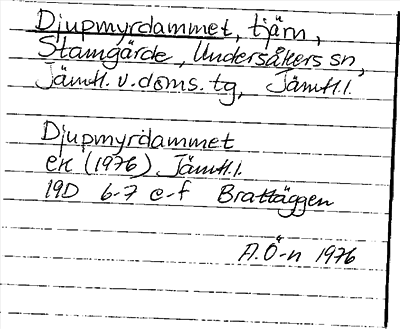 Djupmyrdammet, tjärn,
Stamgärde, Undersåkers sn,
Jämtl. v. doms. tg, Jämtl. l.
Djupmyrdammet
ek (1976) Jämtl. l.
19D 6-7 e-f Brattäggen
A. Ö-n 1976